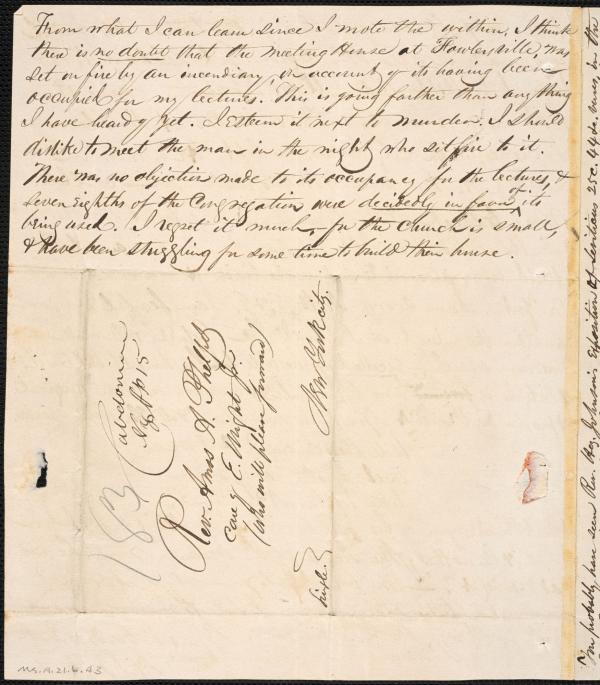 From what I can learn since I wrote the within, I think
there is no doubt that the meeting House at Fowlersville, was
set on fire by an incendiary, on account of its having been
occupied for my lectures. This is going farther than any thing
I have heard of yet. I esteem it next to murder. I should
dislike to meet the man in the night who sit fire to it.
There was no objection made to its occupancy for the lectures, &
seven eighths of the Congregation were decidedly in favor of its
being used. I regret it much, for the church is small,
& have been struggling for some time to build their house.
Caledonia
NY Ap 15
18¾
Rev. Amos A. Phelps
Care of E. Wright Jr.
(who will please forward)
New York city.
Single
You probably have seen Rev. Hez. Johnson's exposition of Leviticus 25c. 44 &c. verses, in the
Ms. A. 21. 6. 43